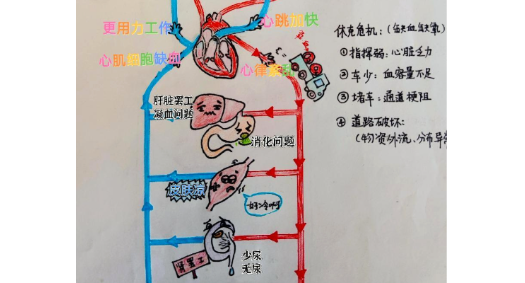 更用力工作
心跳加快
心肌细胞缺血
肝脏罢工
凝血问题
消化问题
皮肤凉
好冷啊
少尿
无尿
休克危机：（缺血缺氧）
①指挥弱：心脏乏力
②车少：血容量不足
③堵车：通道梗阻
④道路破坏：
（物资外流、分布异